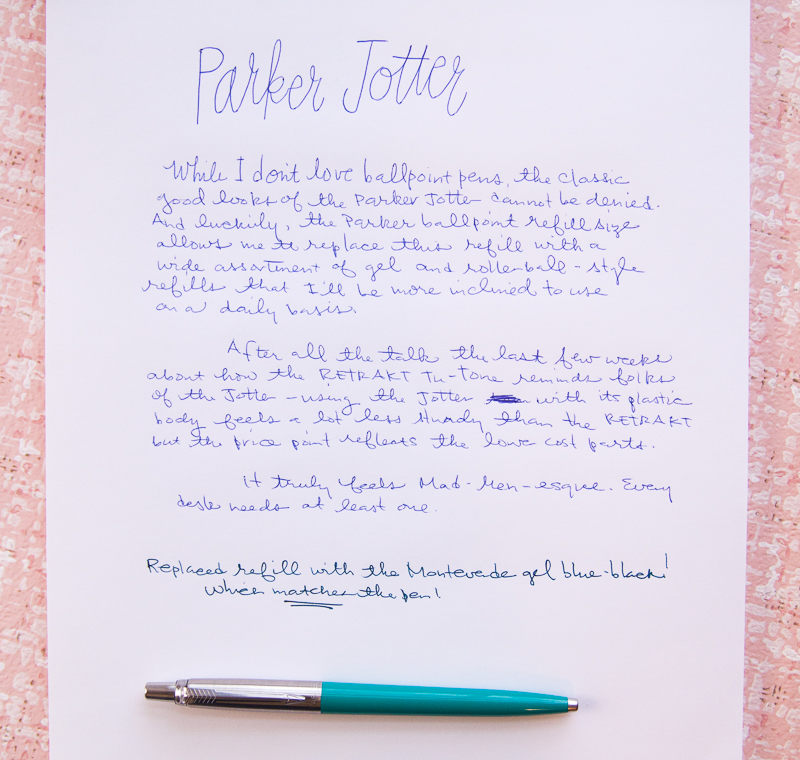 Parker Jotter
While I don't love ballpoint pens, the classic
good looks of the Parker Jotter cannot be denied.
And luckily, the Parker ballpoint refill size
allows me to replace this refill with a
wide assortment of gel and rollerball-style
refills that I'll be more inclined to use
on a daily basis.
After all the talk the last few weeks
about how the RETRAKT Tu-Tone reminds folks
of the Jotter - using the Jotter with its plastic
body feels a lot less sturdy than the RETRAKT
but the price point reflects the lower cost parts.
it truly feels Mad-Men-esque. Every
desk needs at least one.
Replaced refill with the Monteverde gel blue-black!
Which matches the pen!